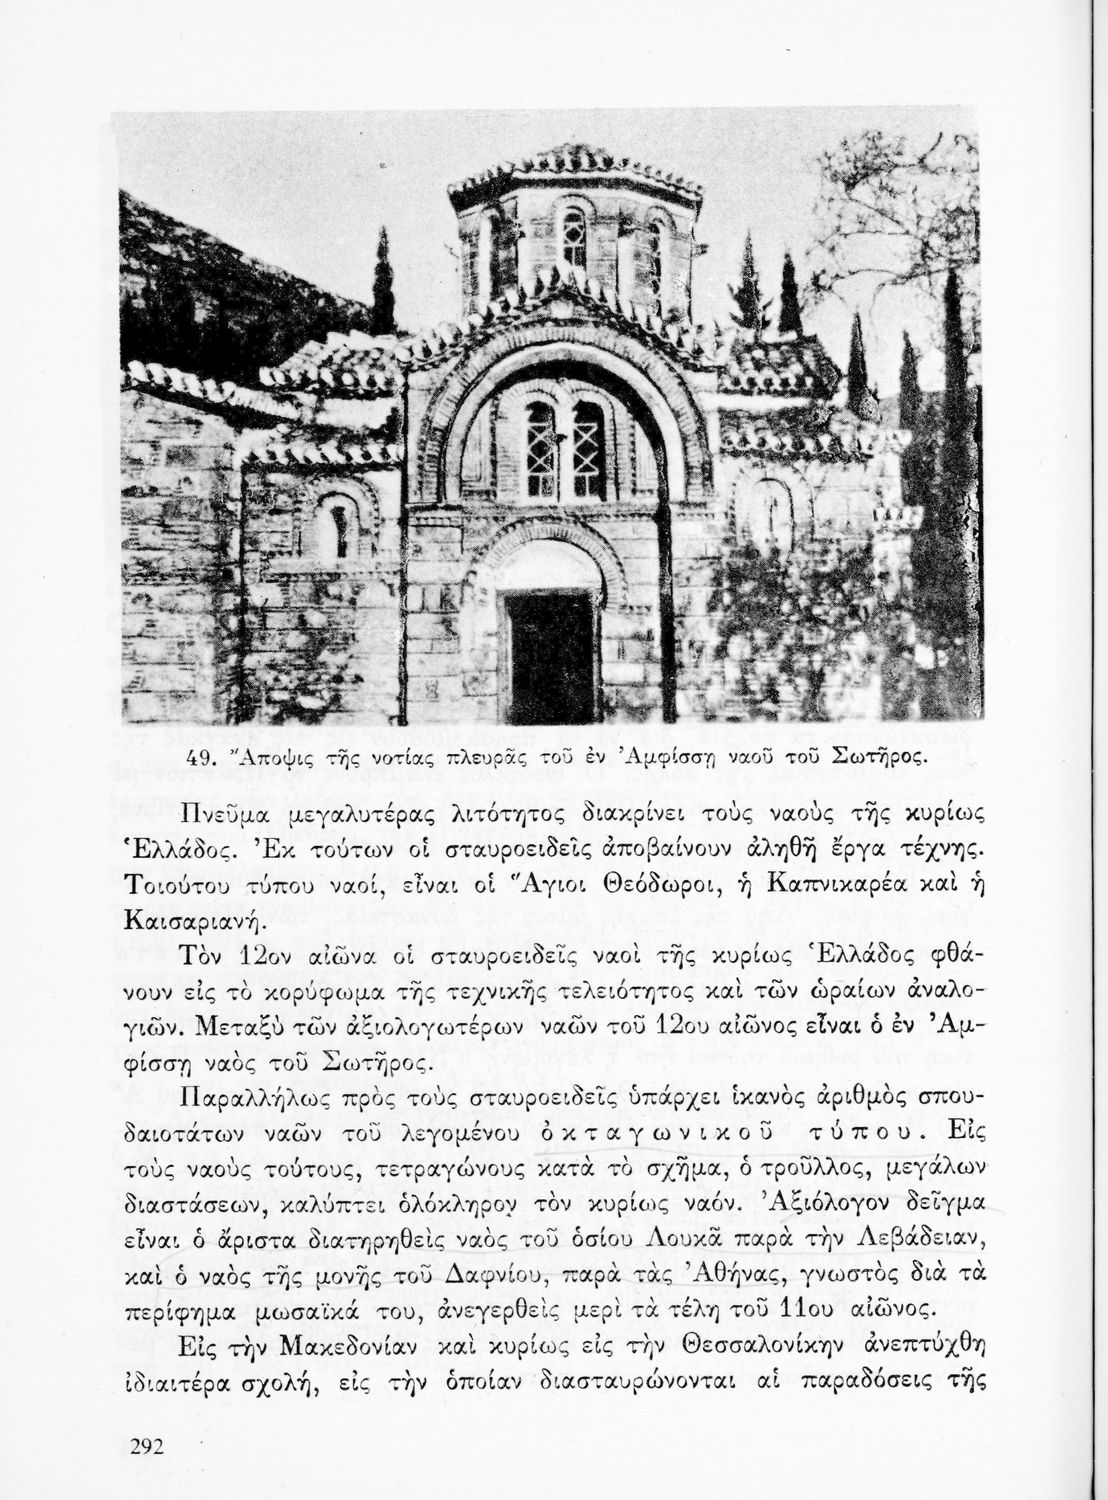 49. Ἄποψις τῆς νοτίας πλευρᾶς τοῦ ἐν Ἀμφίσσῃ ναοῦ τοῦ Σωτῆρος.
Πνεῦμα μεγαλυτέρας λιτότητος διακρίνει τοὺς ναοὺς τῆς κυρίως
Ἑλλάδος. Ἐκ τούτων οἱ σταυροειδεῖς ἀποβαίνουν ἀληθῆ ἔργα τέχνης.
Τοιούτου τύπου ναοί, εἶναι οἱ Ἅγιοι Θεόδωροι, ἡ Καπνικαρέα καὶ ἡ
Καισαριανή.
Τὸν 12ον αἰῶνα οἱ σταυροειδεῖς ναοὶ τῆς κυρίως Ἑλλάδος φθά-
νουν εἰς τὸ κορύφωμα τῆς τεχνικῆς τελειότητος καὶ τῶν ὡραίων ἀναλο-
γιῶν. Μεταξὺ τῶν ἀξιολογωτέρων ναῶν τοῦ 12ου αἰῶνος εἶναι ὁ ἐν Ἀμ-
φίσσῃ ναὸς τοῦ Σωτῆρος.
Παραλλήλως πρὸς τοὺς σταυροειδεῖς ὑπάρχει ἱκανὸς ἀριθμὸς σπου-
δαιοτάτων ναῶν τοῦ λεγομένου ὀκταγωνικοῦ τύπου. Εἰς
τοὺς ναοὺς τούτους, τετραγώνους κατὰ τὸ σχῆμα, ὁ τροῦλλος, μεγάλων
διαστάσεων, καλύπτει ὁλόκληρον τὸν κυρίως ναόν. Ἀξιόλογον δεῖγμα
εἶναι ὁ ἄριστα διατηρηθεὶς ναὸς τοῦ ὁσίου Λουκᾶ παρὰ τὴν Λεβάδειαν,
καὶ ὁ ναὸς τῆς μονῆς τοῦ Δαφνίου, παρὰ τὰς Ἀθήνας, γνωστὸς διὰ τὰ
περίφημα μωσαϊκά του, ἀνεγερθεὶς μερὶ τὰ τέλη τοῦ 11ου αἰῶνος.
Εἰς τὴν Μακεδονίαν καὶ κυρίως εἰς τὴν Θεσσαλονίκην ἀνεπτύχθη
ἰδιαιτέρα σχολή, εἰς τὴν ὁποίαν διασταυρώνονται αἱ παραδόσεις τῆς
292